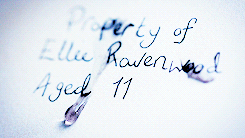 Property of
Ellie Ravenwood
Aged 11